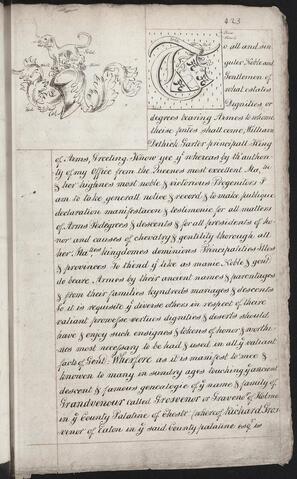 423
To all and sin
guler Noble and
Gentlemen of
what estates
Dignities or
degrees bearing Armes to whome
these pntes shall come, William
Dethick Garter principall King
of Arms, Greeting. Know yee yt whereas by th'authori
ty of my Office from the Queenes most excellent Matie
& her highnes most noble & victorious Progenitors I
am to take generall notice & record & to make publique
declaration manifestacon & testimonie for all matters
of Arms Pedegrees & descents & for all presidents of ho
nor and causes of chevalry & gentility through all
her Maties kingdomes dominions Principalities Isles
& provinces To thend yt like as manie Noble & gentl
do beare Armes by their ancient names & parentages
& from their families kyndreds mariages & descents
So it is requisite yt diverse others in respect of theire
valiant prowesse vertues dignities & deserts should
have & enjoy such ensignes & tokens of honor & worthi
nes most necessary to be had & used in all ye valiant
facts of Gentl: Wherfore as it is manifest to mee &
knowen to many in sundry ages touching ye ancient
descent & famous genealogie of ye name & family of
Grandvenour called Grosvenor or Gravenor of Holme
in ye County Palatine of Chestr (wherof Richard Gros
venor of Eaton in ye said County palatine esqr is